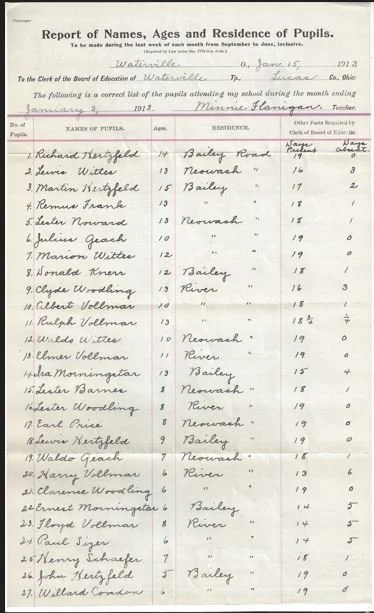 Report of Names, Ages and Residence of Pupils.
To be made during the last week of each month from September to June, inclusive.
Waterville O., Jan. 15, 1913
To the Clerk of the Board of Education of Waterville Tp. Lucas Co., Ohio:
The following is a correct list of the pupils attending my school during the month ending
January 3, 1913. Minnie Flanigan, Teacher.
No. of Pupils. NAMES OF PUPILS. Ages. RESIDENCE. Other Facts Required by Clerk of Board of Education.
Days Present Days Absent.
1. Richard Hertzfeld 14 Bailey Road 19 0
2. Lewis Wittes 13 Neowash " 16 3
3. Martin Hertzfeld 15 Bailey " 17 2
4. Remus Frank 13 " " 18 1
5. Lester Noward 13 Neowash " 18 1
6. Julius Geach 10 " " 19 0
7. Marion Wittes 12 " " 19 0
8. Donald Knerr 12 Bailey " 18 1
9. Clyde Woodling 13 River " 16 3
10. Albert Vollmar 10 " " 18 1
11. Ralph Vollmar 13 " " 18 3/4 1/4
12. Waldo Wittes 10 Neowash " 19 0
13. Elmer Vollmar 11 River " 19 0
14. Ira Morningstar 13 Bailey 15 4
15. Lester Barnes 8 Neowash " 18 1
16. Lester Woodling 8 River " 19 0
17. Earl Price 8 Neowash " 19 0
18. Lewis Hertzfeld 9 Bailey " 19 0
19. Waldo Geach 7 Neowash " 18 1
20. Harry Vollmar 6 River " 13 6
21. Clarence Woodling 6 " " 19 0
22. Ernest Morningstar 6 Bailey 14 5
23. Floyd Vollmar 8 River " 14 5
24. Paul Sizer 6 " " 14 5
25. Henry Schaefer 7 " 18 1
26. John Hertzfeld 5 Bailey " 19 0
27. Willard Condon 6 " " 19 0